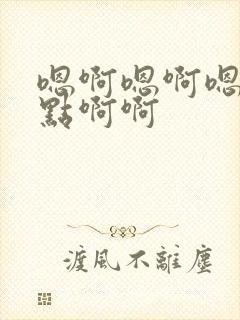 嗯啊嗯啊嗯
點啊啊
渡風不離塵